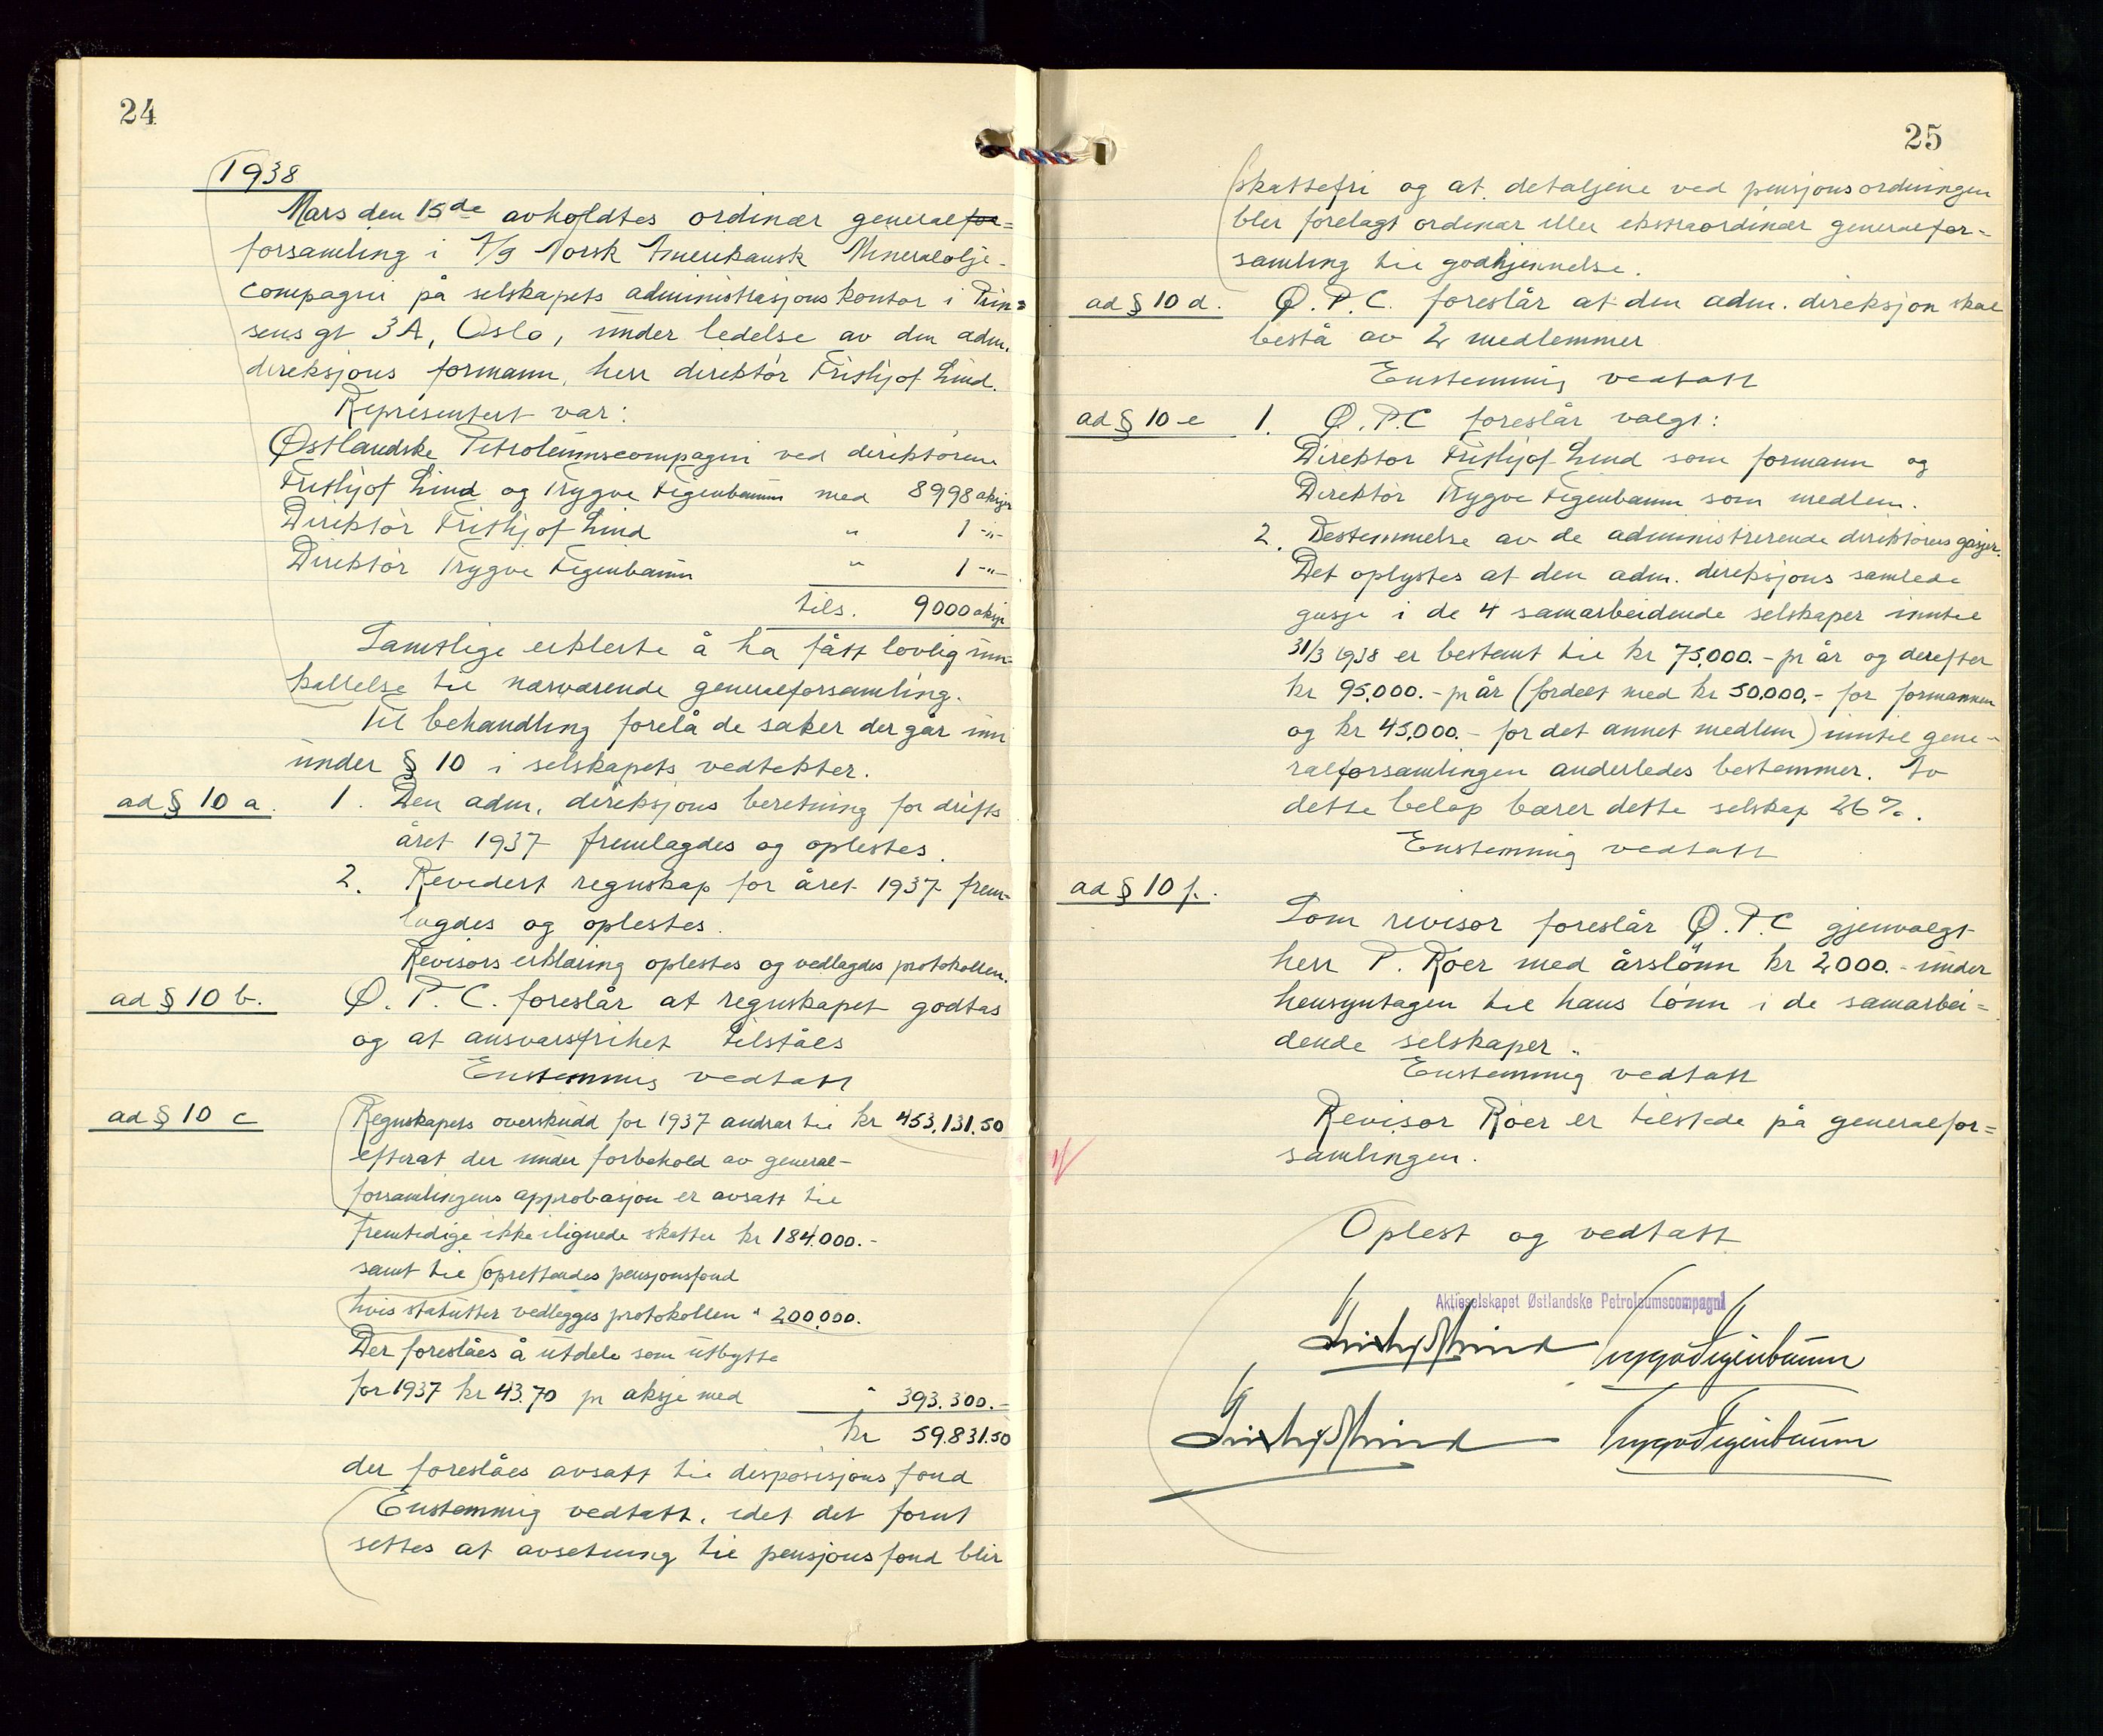 24
1938
Mars den 15de avholdtes ordinær generalfor=
forsamling i A/S Norsk Amerikansk Mineralolje-
compagni på selskapets administrasjonskontor i Prin=
sens gt 3A, Oslo, under ledelse av den adm.
direksjons formann, herr direktør Frithjof Lind.
Representert var:
Østlandske Petroleumscompagni ved direktørene
Frithjof Lind og Trygve Feigenbaum med 8998 aksjer
Direktør Frithjof Lind " 1 -"-
Direktør Trygve Feigenbaum " 1 -"-
tils. 9000 aksje
Samtlige erklerte å ha fått lovlig inn-
kallelse til nærværende generalforsamling.
Til behandling forelå de saker der går inn
under § 10 i selskapets vedtekter.
ad § 10 a. 1. Den adm. direksjons beretning for drifts
året 1937 fremlagdes og oplestes.
2. Revidert regnskap for året 1937 frem-
lagdes og oplestes.
Revisors erklæring oplestes og vedlagdes protokollen.
ad § 10 b. Ø. P. C. foreslår at regnskapet godtas
og at ansvarsfrihet tilståes
Enstemmig vedtatt
ad § 10 c Regnskapets overskudd for 1937 andrar til kr 453.131.50
efterat der under forbehold av general-
forsamlingens approbasjon er avsatt til
fremtidige ikke ilignede skatter kr 184.000.-
samt til oprettendes pensjonsfond
hvis statutter vedlegges protokollen " 200.000.
Der foreslåes å utdele som utbytte
for 1937 kr 43.70 pr aksje med " 393.300.-
kr 59.831.50
der foreslåes avsatt til disposisjonsfond
Enstemmig vedtatt, idet det forut
settes at avsetning til pensjonsfond blir
25
skattefri og at detaljene ved pensjonsordningen
blir forelagt ordinær eller ekstraordinær generalfor=
samling til godkjennelse.
ad § 10 d. Ø. P. C. foreslår at den adm. direksjon skal
bestå av 2 medlemmer
Enstemmig vedtatt
ad § 10 e 1. Ø. P. C foreslår valgt:
Direktør Frithjof Lind som formann og
Direktør Trygve Feigenbaum som medlem.
2. Bestemmelse av de administrerende direktørers gasjer.
Det oplystes at den adm. direksjons samlede
gasje i de 4 samarbeidende selskaper inntil
31/3 1938 er bestemt til kr 75.000.- pr år og derefter
kr 95.000.- pr år (fordelt med kr 50.000.- for formannen
og kr 45.000.- for det annet medlem) inntil gene-
ralforsamlingen anderledes bestemmer. Av
dette beløp bærer dette selskap 26%.
Enstemmig vedtatt
ad § 10 f.
Som revisor foreslår Ø. P. C gjenvalgt
herr P. Røer med årslønn kr 2000.- under
hensyntagen til hans lønn i de samarbei=
dende selskaper.
Enstemmig vedtatt
Revisor Røer er tilstede på generalfor=
samlingen.
Oplest og vedtatt
Aktieselskapet Østlandske Petroleumscompagni
Frithjof Lind Trygve Feigenbaum
Frithjof Lind Trygve Feigenbaum